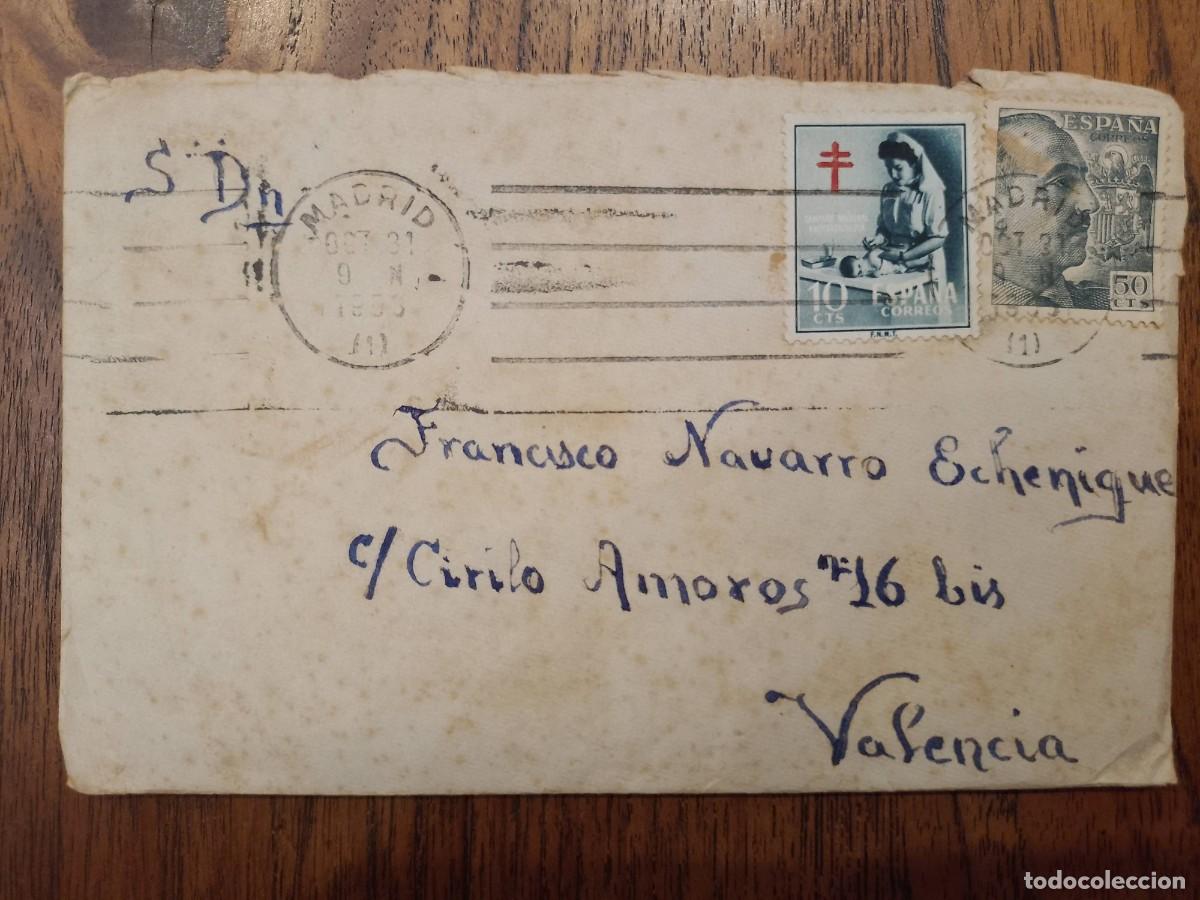 S Dn
MADRID
OCT 31
9 N
1953
(1)
10
CTS
ESPAÑA
CORREOS
F.N.M.T.
ESPAÑA
CORREOS
50
CTS
MADRID
OCT 31
(1)
Francisco Navarro Echenique
c/ Cirilo Amoros nº 16 bis
Valencia
todocoleccion